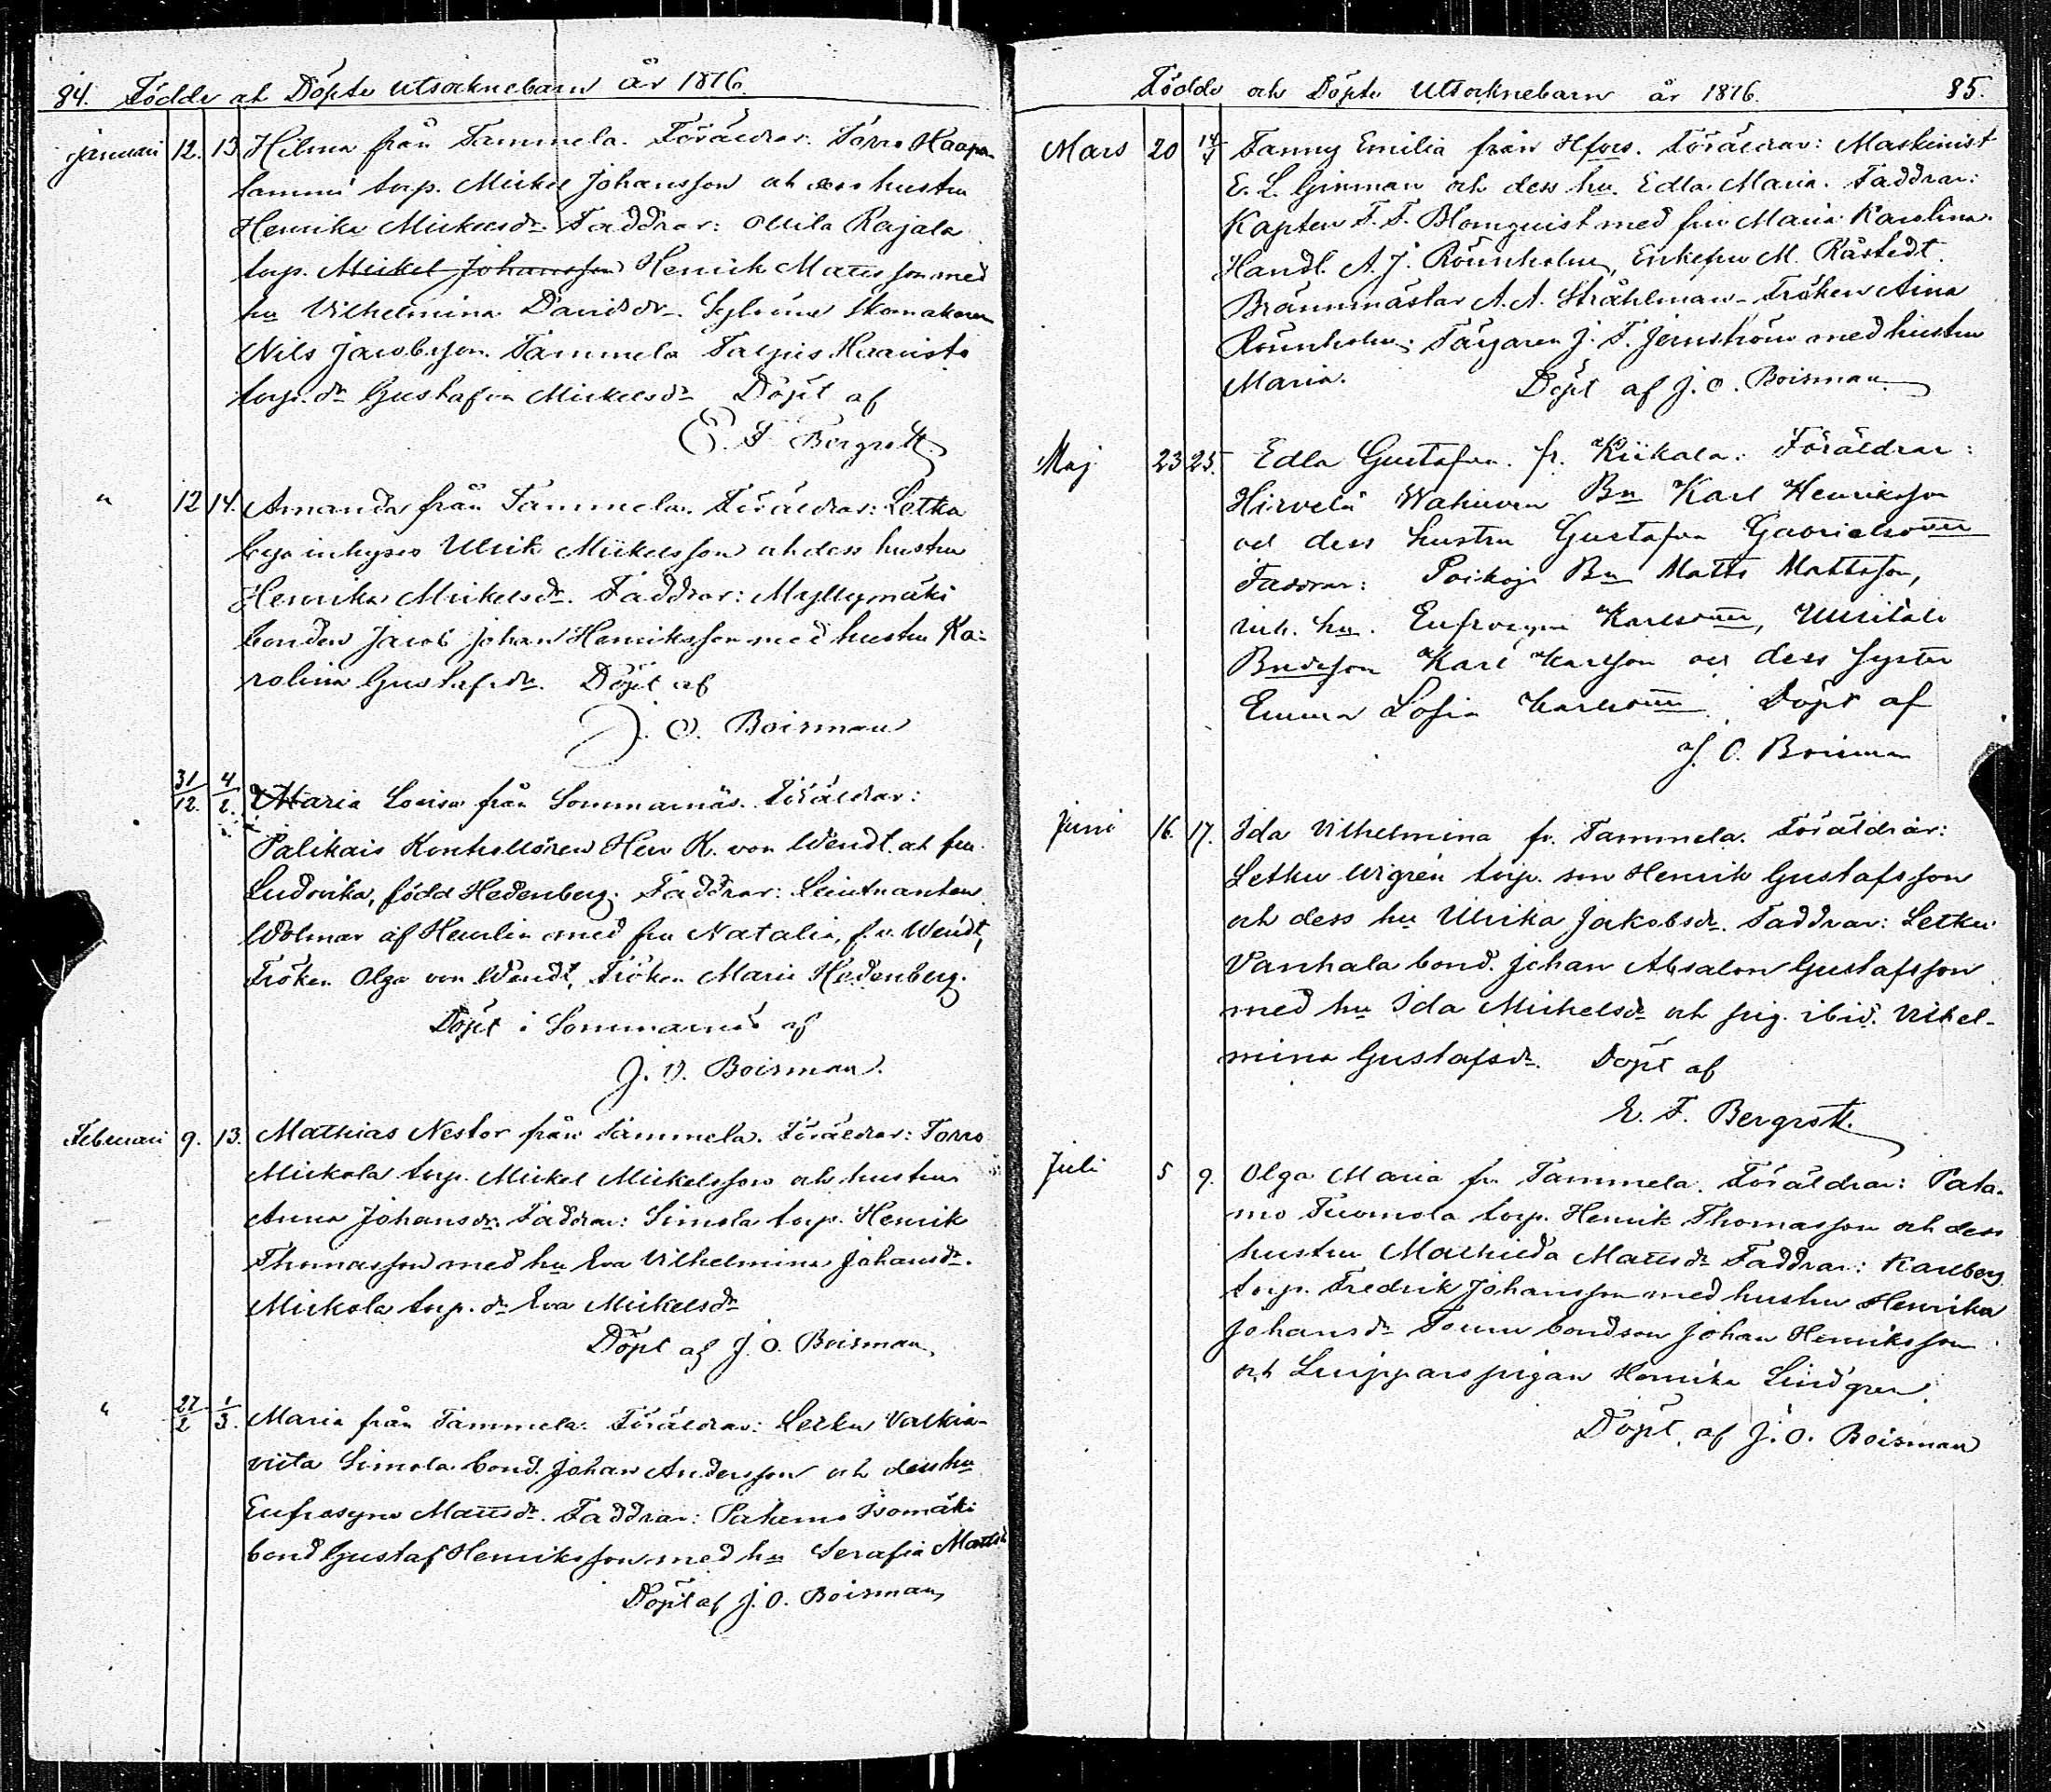 84. Födde och Döpte utsocknebarn år 1876.
Januari 12. 13 Hilma från Tammela. Föräldrar: Torro Haapa-
lammi torp. Mickel Johansson och dess hustru
Henrika Mickelsdr. Faddrar: Ollila Rajala
torp. Mickel Johansson Henrik Mattsson med
hu Vilhelmina Davidsdr. Skomakaren
Nils Jacobsson. Tammela Talpis Haavisto
torp. dr Gustafva Mickelsdr Döpt af
E. F. Bergrott.
" 12 14. Amanda från Tammela. Föräldrar: Letku
inhyses Ulrik Mickelsson och dess hustru
Henrika Mickelsdr. Faddrar: Myllymäki
bonden Jacob Johan Henriksson med hustru Ka-
rolina Gustafsdr. Döpt af
J. O. Boisman
31/12. 4/2. Maria Lovisa från Sommarnäs. Föräldrar:
Palikais Kontrollören Herr K. von Wendt och fru
Ludovika, född Hedenberg. Faddrar: Leiutnanten
Wolmar af Heurlin med fru Natalia, f. v. Wendt,
Fröken Olga von Wendt, Fröken Maria Hedenberg.
Döpt i Sommarnäs af
J. O. Boisman.
Februari 9. 13. Mathias Nestor från Tammela. Föräldrar: Torro
Mickola torp. Mickel Mickelsson och hustru
Anna Johansdr. Faddrar: Simola torp. Henrik
Thomasson med hu Eva Vilhelmina Johansdr.
Mickola torp. dr Eva Mickelsdr
Döpt af J. O. Boisman.
" 27/2 1/3. Maria från Tammela. Föräldrar: Letku Valkia-
viita Simola bond. Johan Andersson och dess hu
Eufrosyne Mattsdr. Faddrar: Patamo Isomäki
bond Gustaf Henriksson med hu Serafia Mattsd
Döpt af J. O. Boisman
Födde och Döpte Utsocknebarn år 1876. 85.
Mars 20 14/4 Fanny Emilia från Hfors. Föräldrar: Maskinist
E. L. Ginman och dess hu. Edla Maria. Faddrar:
Kapten F. F. Blomquist med fru Maria Karolina.
Handl. A. J. Rönnholm, Enkefru M. Råstedt.
Brännmästar A. A. Stråhlman - Fröken Aina
Rönnholm; Färgaren J. F. Jernström med hustru
Maria. Döpt af J. O. Boisman.
Maj 23 25. Edla Gustafva. fr. Kiikala. Föräldrar:
Hirvelä Wahuven Bn Karl Henriksson
och dess hustru Gustafva Gabrielsdtter
Faddrar: Poikoja Bn Matts Mattsson,
hu. Eufrosyne Karlsdtter, Uusitalo
Bndeson Karl Karlsson och dess syster
Emma Sofia Karlsdtter. Döpt af
J. O. Boisman
Juni 16. 17. Ida Vilhelmina fr. Tammela. Föräldrar:
Letku Wigrén torp. son Henrik Gustafsson
och dess hu Ulrika Jakobsdr. Faddrar: Letku
Vanhala bond. Johan Absalon Gustafsson
med hu Ida Michelsdr och pig. ibid. Vilhel-
mina Gustafsdr. Döpt af
E. F. Bergrott.
Juli 5 9. Olga Maria fr. Tammela. Föräldrar: Pata-
mo Tuomola torp. Henrik Thomasson och dess
hustru Mathilda Mattsdr Faddrar: Karlberg
torp. Fredrik Johansson med hustru Henrika
Johansdr bondson Johan Henriksson
och pigan Henrika Lindgren.
Döpt af J. O. Boisman